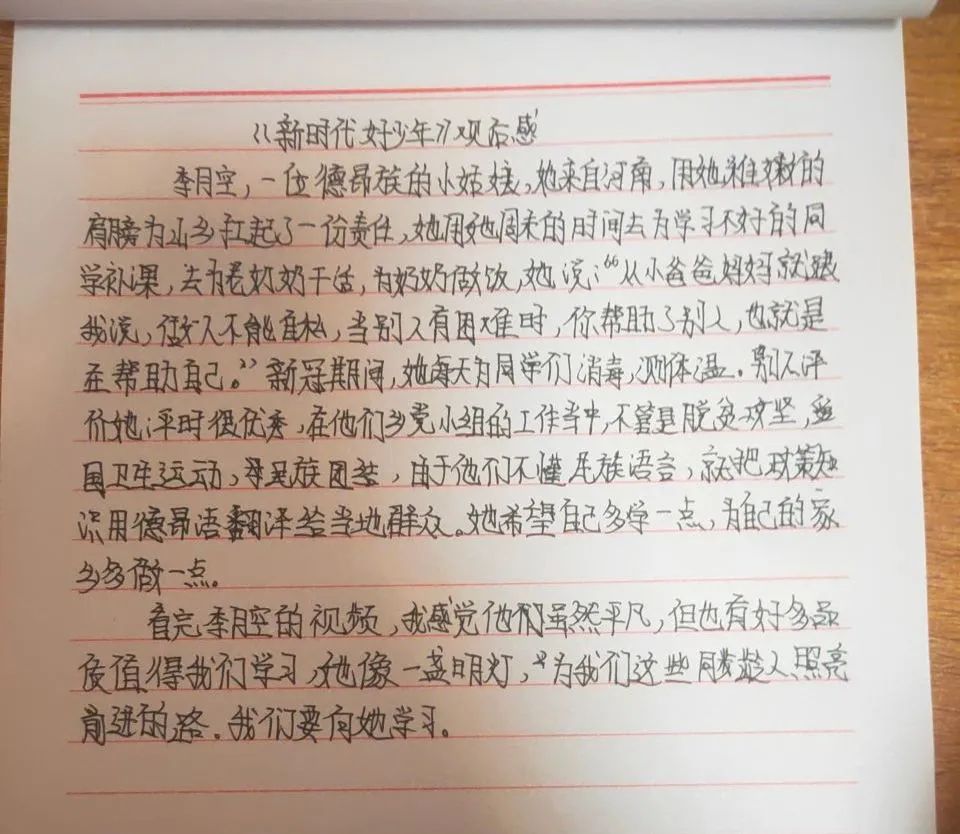 《新时代好少年》观后感
李月空，一位德昂族的小姑娘，她来自河南，用她稚嫩的
肩膀为山乡扛起了一份责任，她用她周末的时间去为学习不好的同
学补课，去为老奶奶干活，为奶奶做饭，她说：“从小爸爸妈妈就跟
我说，做人不能自私，当别人有困难时，你帮助了别人，也就是
在帮助自己。”新冠期间，她每天为同学们消毒，测体温。别人评
价她：平时很优秀，在他们乡党小组的工作当中，不管是脱贫攻坚，
国卫生运动，民族团结，由于他们不懂民族语言，就把政策知
识用德昂语翻译给当地群众。她希望自己多学一点，为自己的家
乡多做一点。
看完李月空的视频，我感觉他们虽然平凡，但也有好多品
质值得我们学习，她像一盏明灯，为我们这些同龄人照亮
前进的路。我们要向她学习。